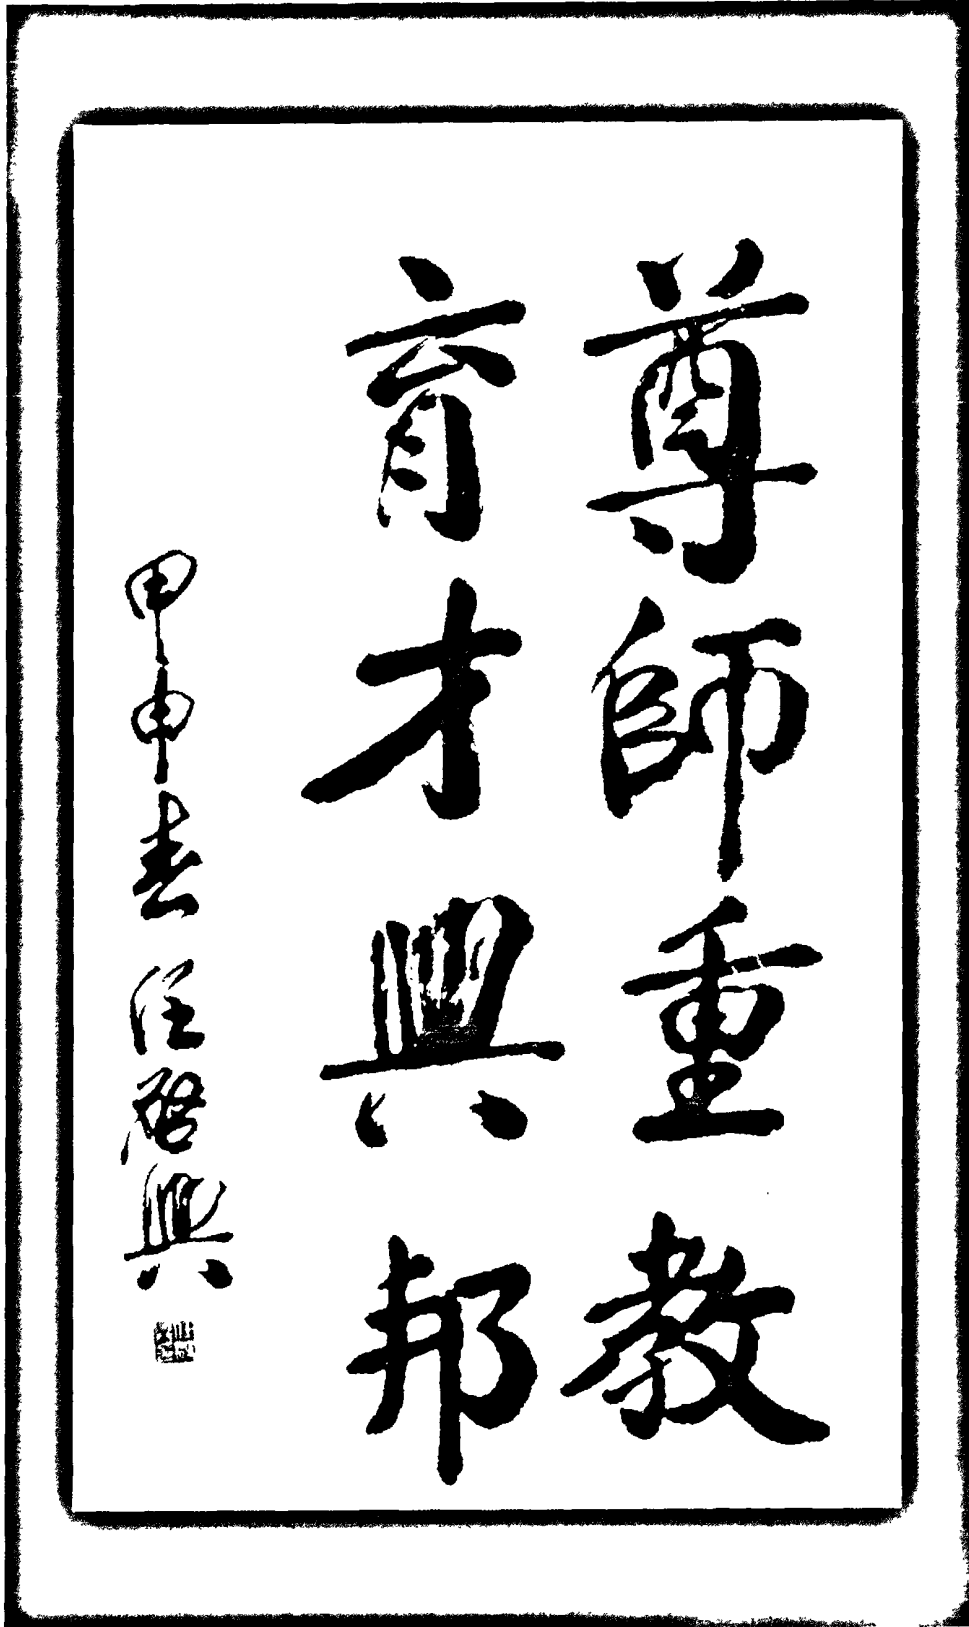 尊師重教
育才興邦
甲申春任啓興